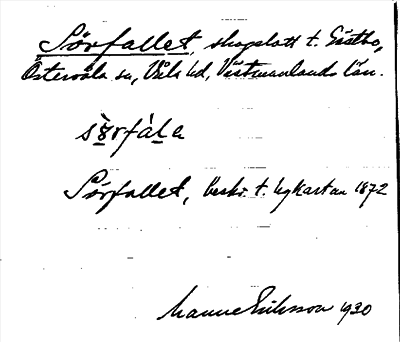 Sörfallet, skogslott t. Gästbo,
Östervåla sn, Våla hd, Västmanlands län.
sö̀rfála
Sörfallet, Beskr. t. legkartan 1872
Manne Eriksson 1930